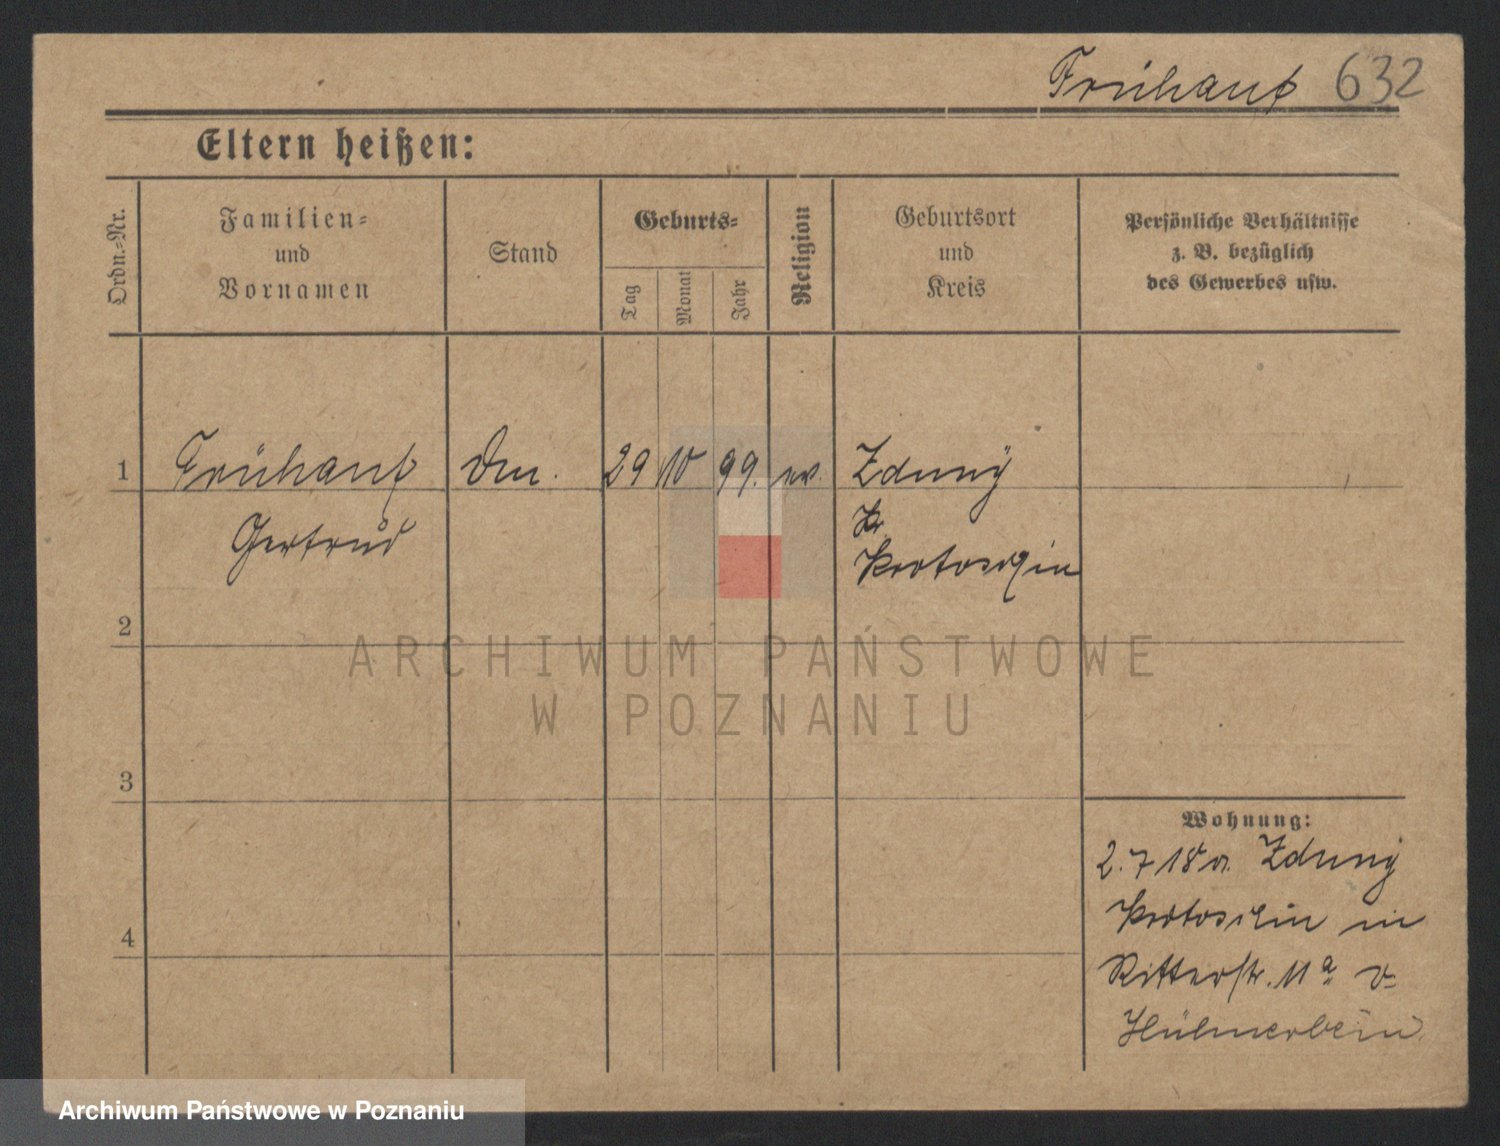 Frühauf 632
Eltern heißen:
Ordn.-Nr.
Familien-
und
Vornamen
Stand
Geburts-
Tag
Monat
Jahr
Religion
Geburtsort
und
Kreis
Persönliche Verhältnisse
z. B. bezüglich
des Gewerbes usw.
1 Frühauf 29 10 99. ev. Zduny
Gertrud
Kr.
Krotoschin
2
3
4
Wohnung:
2. 7 18 a. Zduny
Krotoschin in
Ritterstr. 11a b
Hühnerbein
ARCHIWUM PAŃSTWOWE
W POZNANIU
Archiwum Państwowe w Poznaniu